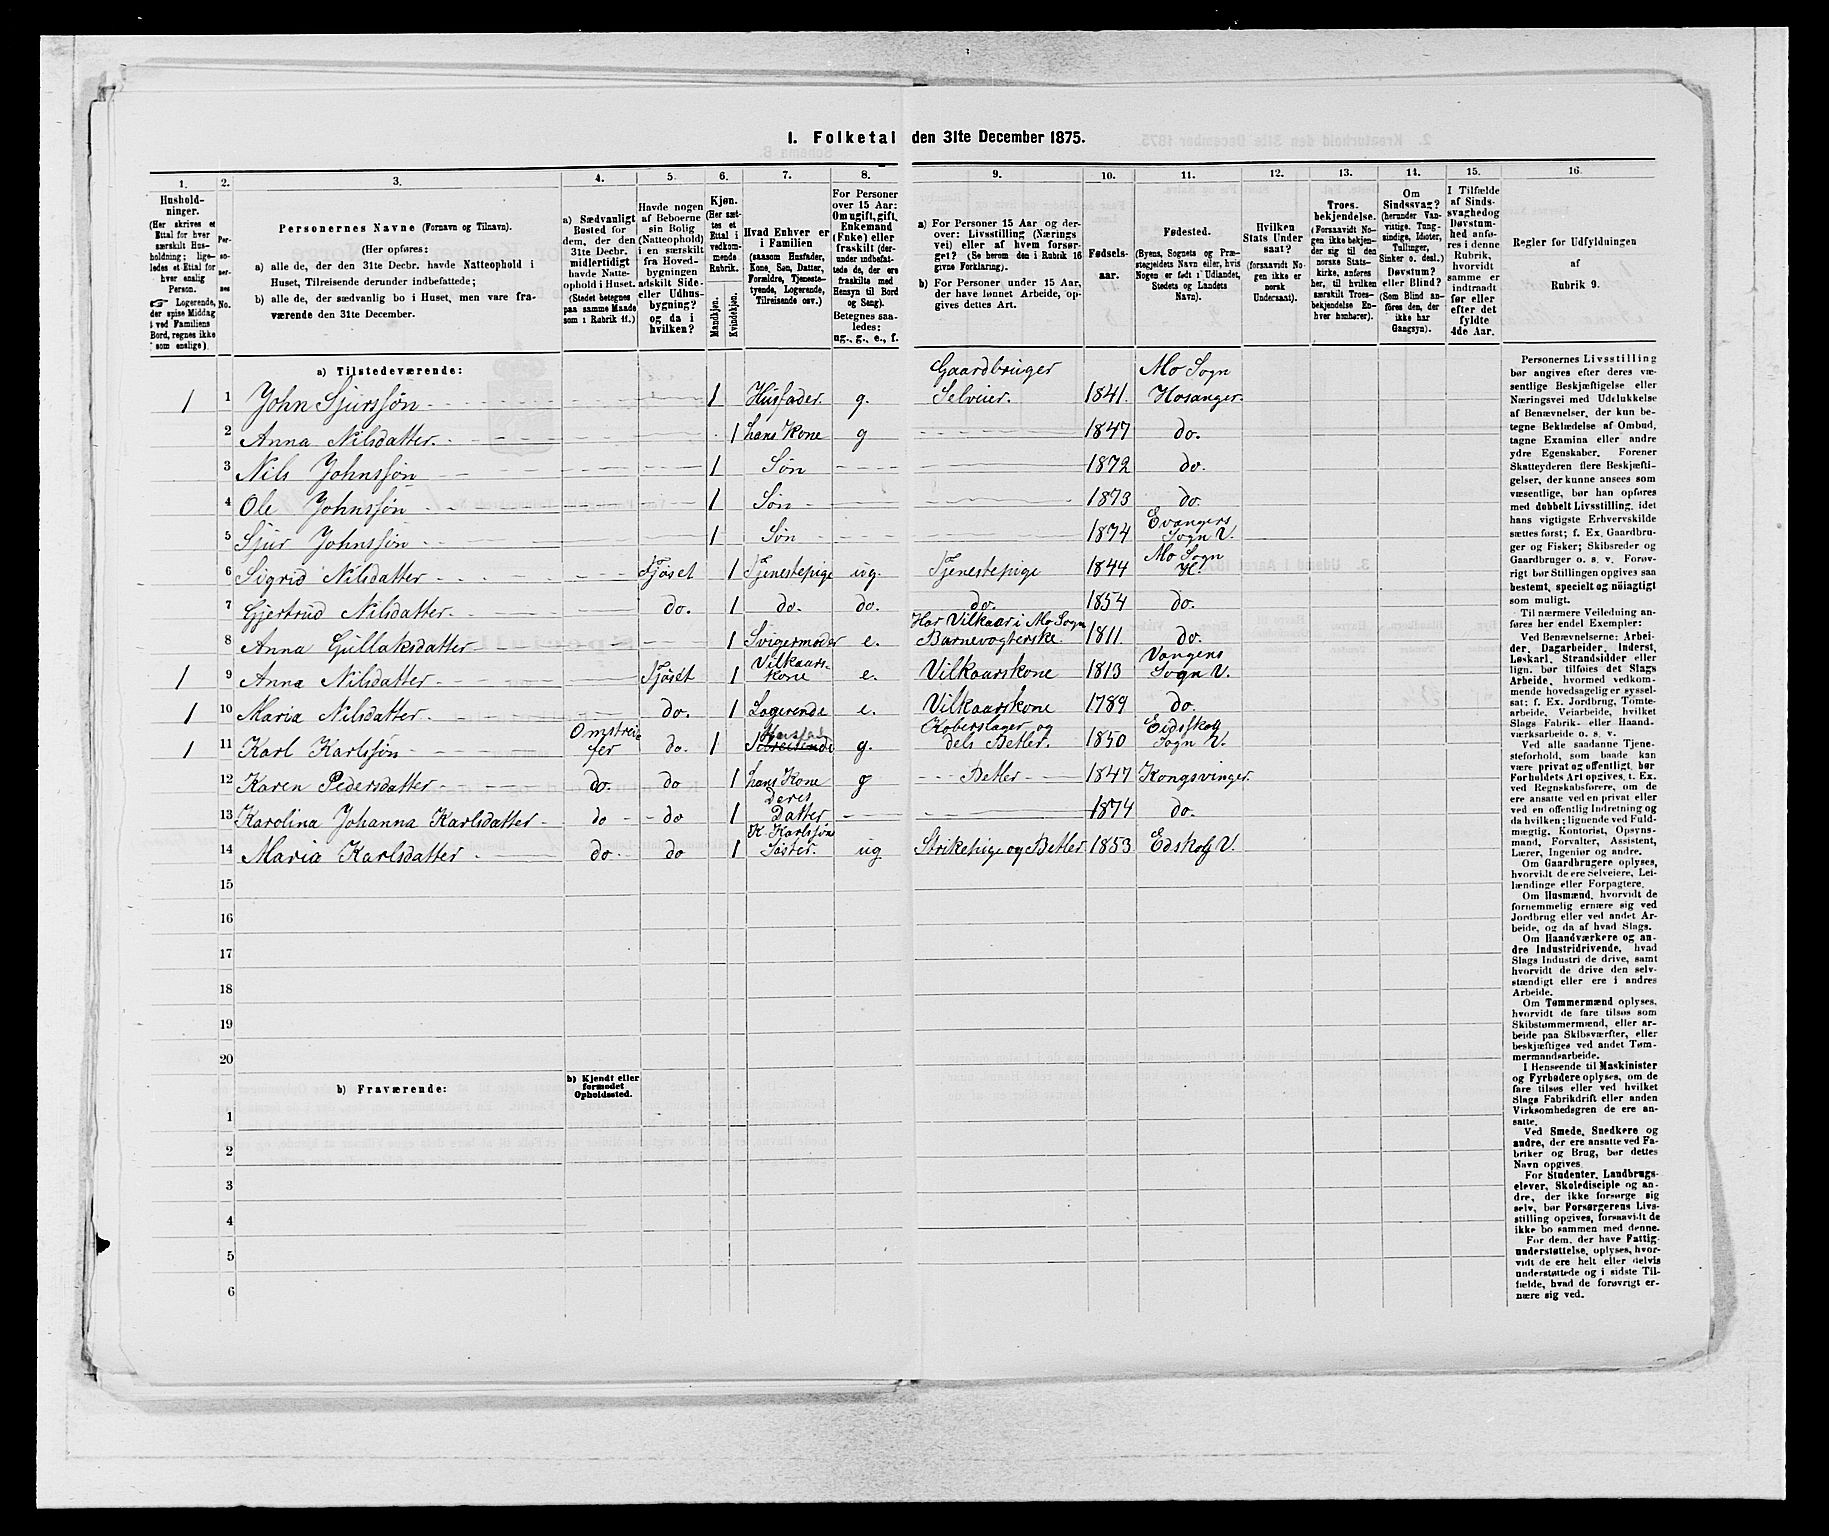 1. Folketal den 31te December 1875.
1. 2. 3. 4. 5. 6. 7. 8. 9. 10. 11. 12. 13. 14. 15. 16.
Hushold-
ninger.
(Her skrives et
Ettal for hver
særskilt Hus-
holdning; lige-
ledes et Ettal for
hver enslig
Person.
☞ Logerende,
der spise Middag
i ved Familiens
Bord, regnes ikke
som enslige).
Per-
so-
ner-
nes
No.
Personernes Navne (Fornavn og Tilnavn).
(Her opføres:
a) alle de, der den 31te Decbr. havde Natteophold i
Huset, Tilreisende derunder indbefattede;
b) alle de, der sædvanlig bo i Huset, men vare fra-
værende den 31te December.
a) Sædvanligt
Bosted for
dem, der den
31te Decbr.
midlertidigt
havde Natte-
ophold i Huset.
(Stedet betegnes
paa samme Maade
som i Rubrik 11.)
Havde nogen
af Beboerne
sin Bolig
(Natteophold)
i en særskilt
fra Hoved-
bygningen
adskilt Side-
eller Udhus-
bygning?
og da i
hvilken?
Kjøn.
(Her sæt-
tes et
Ettal i
vedkom-
mende
Rubrik.
Mandkjøn.
Kvindekjøn.
Hvad Enhver er
i Familien
(saasom Husfader,
Kone, Søn, Datter,
Forældre, Tjeneste-
tyende, Logerende,
Tilreisende osv.)
For Personer
over 15 Aar:
Om ugift, gift,
Enkemand
(Enke) eller
fraskilt (der-
under indbefat-
tede de, der ere
fraskilte med
Hensyn til Bord
og Seng).
Betegnes saa-
ledes:
ug., g., e., f.
a) For Personer 15 Aar og der-
over: Livsstilling (Nærings
vei) eller af hvem forsør-
get? (Se herom den i Rubrik 16
givne Forklaring).
b) For Personer under 15 Aar,
der have lønnet Arbeide, op-
gives dettes Art.
Fødsels-
aar.
Fødested.
(Byens, Sognets og Præ-
stegjeldets Navn eller, hvis
Nogen er født i Udlandet,
Stedets og Landets
Navn).
Hvilken
Stats Under
saat?
(forsaavidt No-
gen ikke er
norsk
Undersaat).
Troes-
bekjendelse.
(Forsaavidt No-
gen ikke bekjen-
der sig til den
norske Stats-
kirke, anføres
her, til hvilken
særskilt Troes-
bekjendelse En-
hver henhører).
Om
Sindssvag?
(herunder Van-
vittige, Tung-
sindige, Idioter,
Tullinger,
Sinker o. desl.)
Døvstum?
eller Blind?
(Som Blind an-
føres den, der
ikke har
Gangsyn).
I Tilfælde
af Sinds-
svaghed og
Døvstum-
hed anfø-
res i denne
Rubrik,
hvorvidt
samme er
indtraadt
før eller
efter det
fyldte
4de Aar.
Regler for Udfyldningen
af
Rubrik 9.
a) Tilstedeværende:
1 1 John Sjurssøn 1 Husfader. g. Gaardbruger Selveier. 1841. Mo Sogn Hosanger.
2 Anna Nilsdatter. 1 hans Kone g 1847 do.
3 Nils Johnssøn 1 Søn 1872 do.
4 Ole Johnssøn 1 Søn 1873 do.
5 Sjur Johnssøn 1 Søn 1874 Evangers Sogn V.
6 Sigrid Nilsdatter Fjöset 1 Tjenestepige ug. Tjenestepige 1844 Mo Sogn H.
7 Gjertrud Nilsdatter do. 1 do. do. do. 1854 do.
8 Anna Gullaksdatter 1 Svigermoder e. Har Vilkaar i Mo Sogn Barnevogterske. 1811. do.
1 9 Anna Nilsdatter Fjöset 1 Vilkaars-kone e. Vilkaarskone 1813 Vangens Sogn V.
1 10 Maria Nilsdatter do. 1 Logerende e. Vilkaarskone 1789 do.
1 11 Karl Karlssøn Omstreifer do. 1 g. Koberslager og dels Betler. 1850 Eidsskog Sogn V.
12 Karen Pedersdatter do. do 1 hans Kone g Betler 1847 Kongsvinger.
13 Karolina Johanna Karlsdatter do do 1 deres Datter 1874 do.
14 Maria Karlsdatter do. do 1 K Karlssøns Søster. ug Strikepige og Betler 1853 Edskog V.
15
16
17
18
19
20
b) Fraværende:
b) Kjendt eller
formodet
Opholdssted.
1
2
3
4
5
6
Personernes Livsstilling
bør angives efter deres væ-
sentlige Beskjæftigelse eller
Næringsvei med Udelukkelse
af Benævnelser, der kun be-
tegne Beklædelse af Ombud,
tagne Examina eller andre
ydre Egenskaber. Forener
Skatteyderen flere Beskjæfti-
gelser, der kunne ansees som
væsentlige, bør han opføres
med dobbelt Livsstilling, idet
hans vigtigste Erhvervskilde
sættes først; f. Ex. Gaardbru-
ger og Fisker; Skibsreder og
Gaardbruger o. s. v. Forøv-
rigt bør Stillingen opgives saa
bestemt, specielt og nöiagtigt
som muligt.
Til nærmere Veiledning an-
føres her endel Exempler:
Ved Benævnelserne: Arbei-
der, Dagarbeider, Inderst,
Løskarl, Strandsidder eller
lign. bør tilføies det Slags
Arbeide, hvormed vedkom-
mende hovedsagelig er syssel-
sat; f. Ex. Jordbrug, Tømte-
arbeide, Veiarbeide, hvilket
Slags Fabrik- eller Haand-
værksarbeide o. s. v.
Ved alle saadanne Tjene-
steforhold, som baade kan
være privat og offentligt, bør
Forholdets Art opgives, t. Ex.
ved Regnskabsførere, om de
ere ansatte ved en privat eller
ved en offentlig Indretning og
da hvilken; lignende ved Fuld-
mægtig, Kontorist, Opsyns-
mand, Forvalter, Assistent,
Lærer, Ingeniør og andre.
Om Gaardbrugere oplyses,
hvorvidt de ere Selveiere, Lei-
lændinge eller Forpagtere.
Om Husmænd, hvorvidt de
fornemmelig ernære sig ved
Jordbrug eller ved andet Ar-
beide, og da af hvad Slags.
Om Haandværkere og an-
dre Industridrivende, hvad
Slags Industri de drive, samt
hvorvidt de drive den selv-
stændigt eller ere i andres
Arbeide.
Om Tømmermænd oplyses,
hvorvidt de fare tilsøs som
Skibstømmermænd, eller ar-
beide paa Skibsværfter, eller
beskjæftiges ved andet Tøm-
mermandsarbeide.
I Henseende til Maskinister
og Fyrbødere oplyses, om de
fare tilsøs eller ved hvilket
Slags Fabrikdrift eller anden
Virksomhedsgren de ere an-
satte.
Ved Smede, Snedkere og
andre, der ere ansatte ved Fa-
briker og Brug, bør dettes
Navn opgives.
For Studenter, Landbrugs-
elever, Skoledisciple og an-
dre, der ikke forsørge sig
selv, bør Forsørgerens Livs-
stilling opgives, forsaavidt de
ikke bo sammen med denne.
For dem, der have Fattig-
understøttelse, oplyses, hvor-
vidt de ere helt eller delvis
understøttede og i sidste Til-
fælde, hvad de forøvrigt er-
nære sig ved.